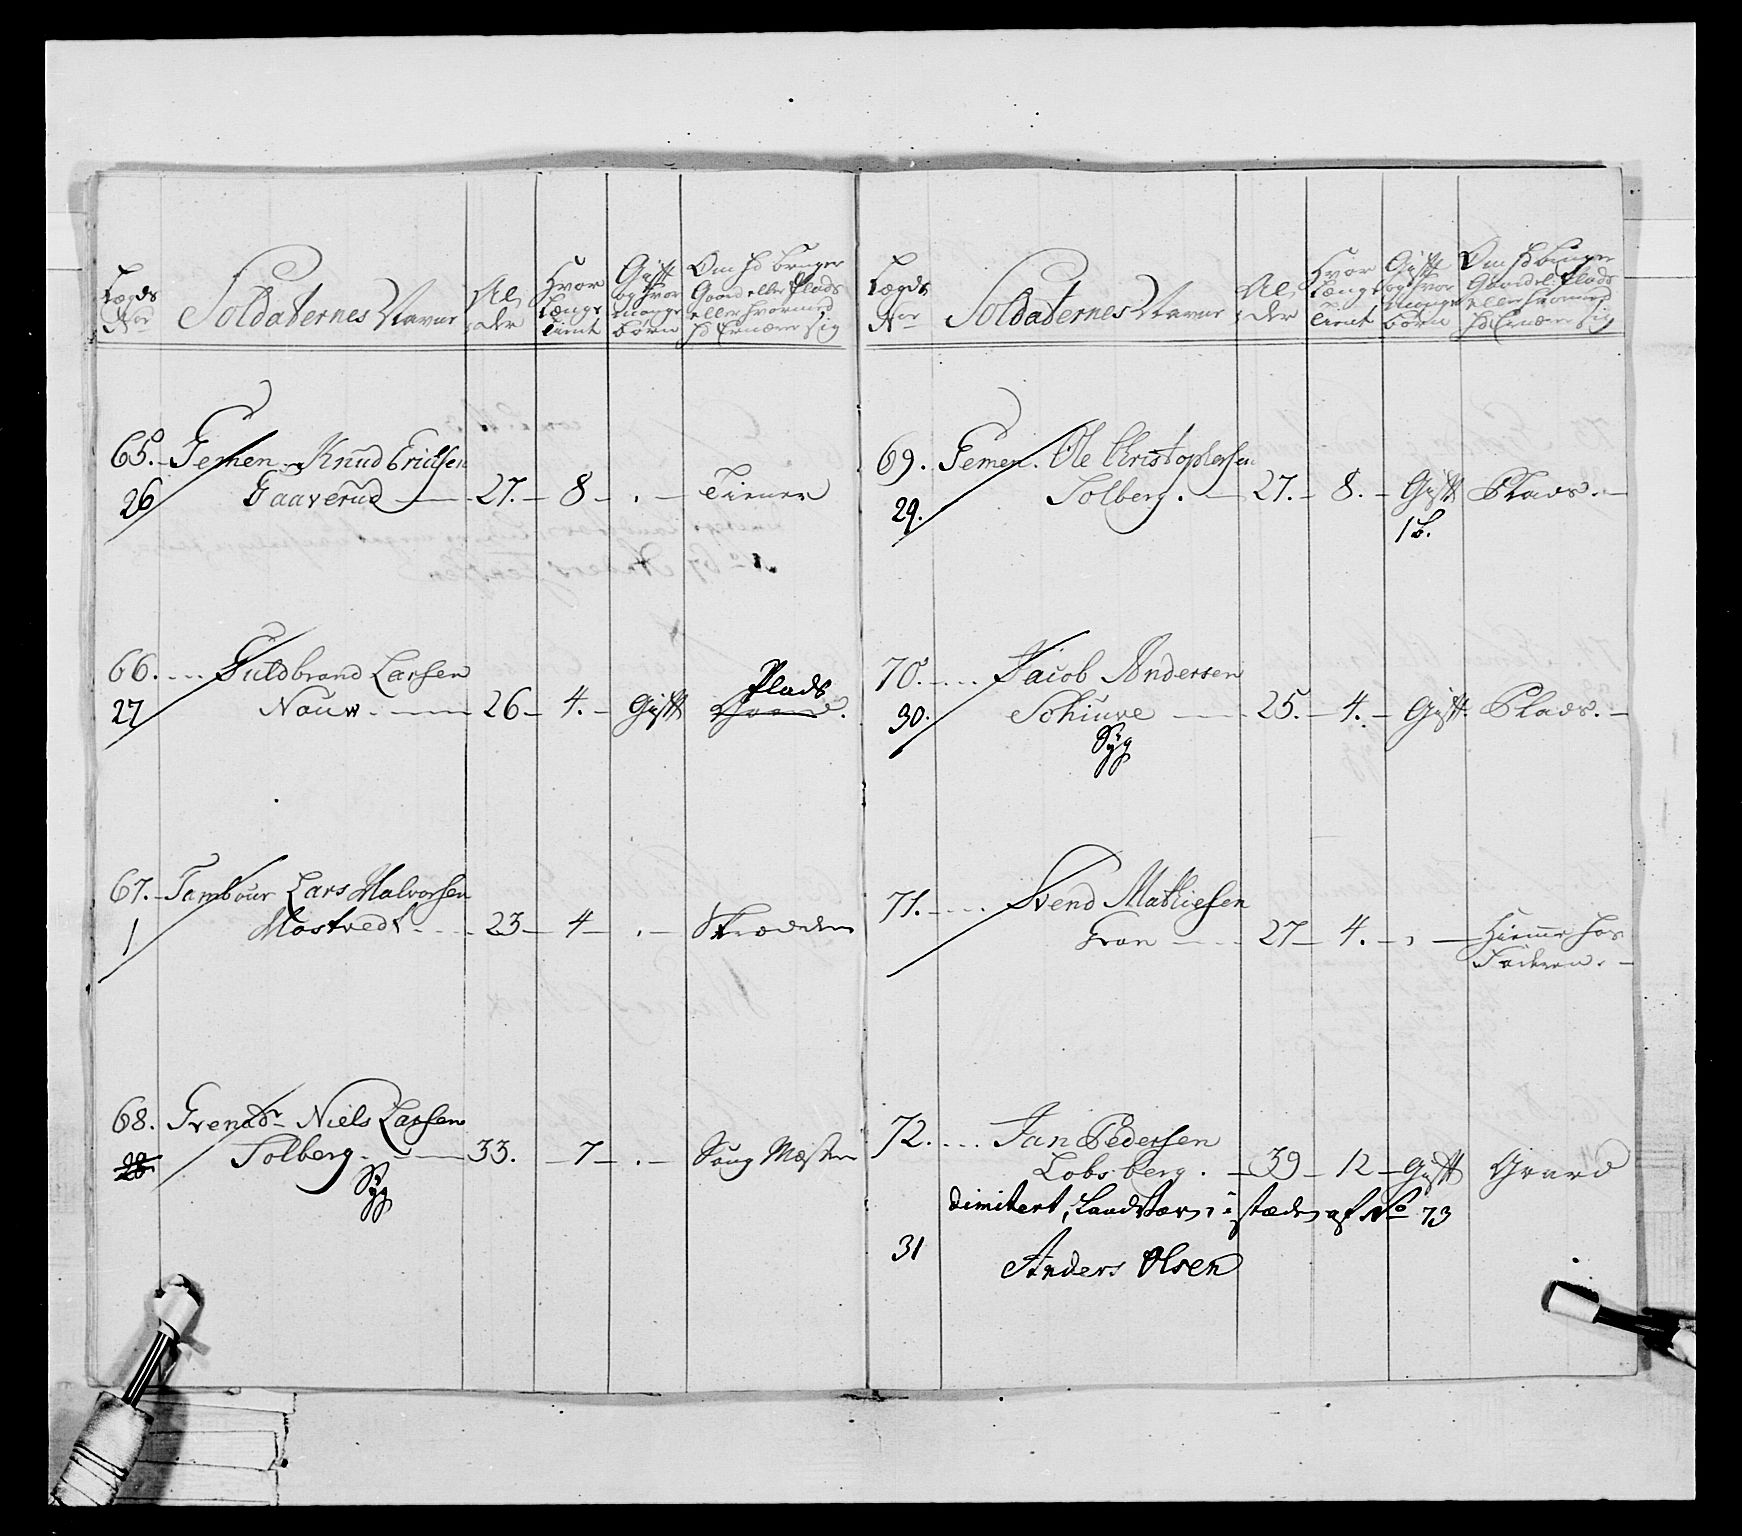 Legds Nor
Soldaternes Navne
Al der
Hvor Længe tient
Gift og hvor mange børn
Om hd bruger Gaard eller Plads eller hvormed hd Ernærer sig
65. Gemen Knud Erichsen
26 Gaaverud 27. 8 . Tiener
66. Guldbrand Larsen
Plads
27 Nouw 26 4. Gift Gaard.
67. Tambour Lars Halvorsen
1 Mostvedt 23 4 . Skrædder
68. Grenadr Niels Larsen
28 Solberg 33. 7 . Saug Mæster
Syg
Legds Nor
Soldaternes Navne
Al der
Hvor Længe tient
Gift og hvor mange børn
Om hd bruger Gaard el. Plads eller hvormed hd Ernærer sig
69. Gemen. Ole Christophersen
29. Solberg. 27. 8. Gift Plads.
1 b.
70. Jacob Andersen
30. Schiuve 25. 4. Gift. Plads.
Syg
71. Svend Mathiesen
Gran 27 4. . Hiemme hos
Faderen.
72. Jan Pedersen
Lobsberg. 39 12 Gift Gaard
dimitert, Landværn i stæden af No 73
31 Anders Olsen